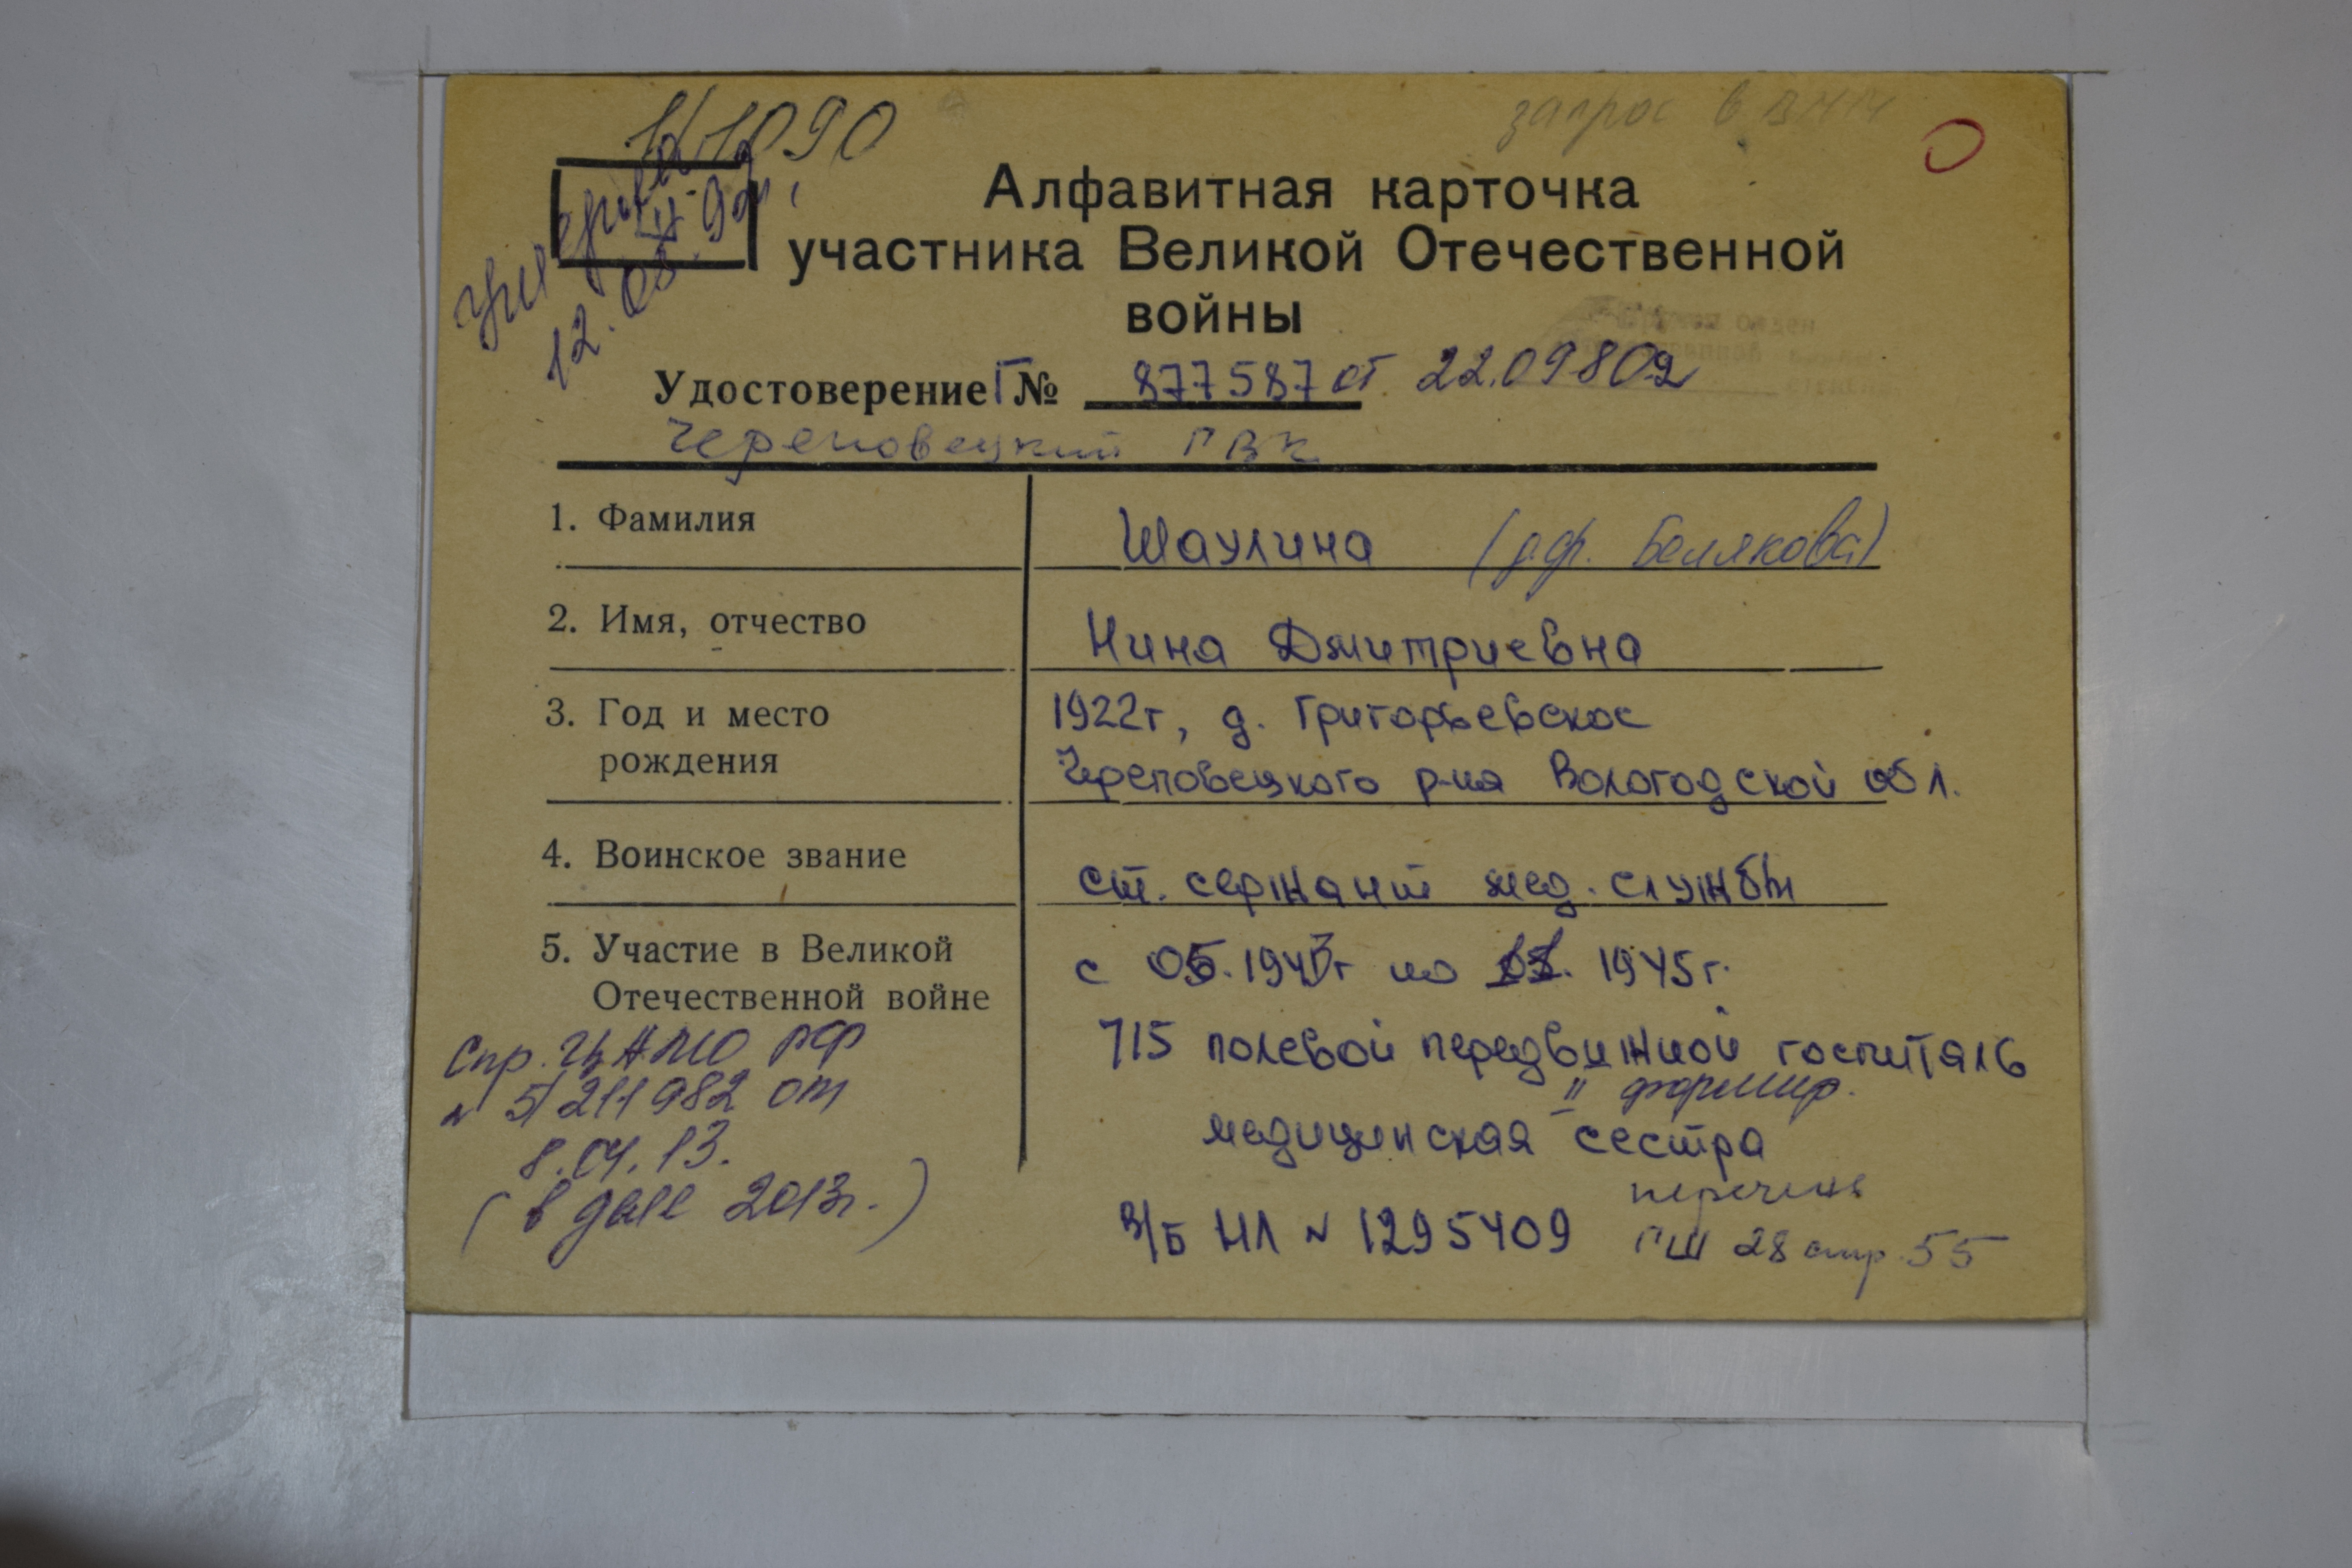 1/1090
запрос в
умерла
12.05.92г.
Алфавитная карточка
участника Великой Отечественной
войны
Удостоверение Г № 877587 от 22.09.80г
Череповецкий ГВК
1. Фамилия Шаулина (д.ф. Белякова)
2. Имя, отчество Нина Дмитриевна
3. Год и место 1922г, д. Григорьевское
рождения Череповецкого р-на Вологодской обл.
4. Воинское звание ст. сержант мед. службы
5. Участие в Великой с 05.1943г по 11.1945г.
Отечественной войне
715 полевой передвижной госпиталь
II формир.
медицинская сестра
Спр. ЦАМО РФ
№ 5/211982 от
8.04.13.
(в деле 2013г.)
перечень
В/Б НЛ № 1295409 ГШ 28 стр. 55